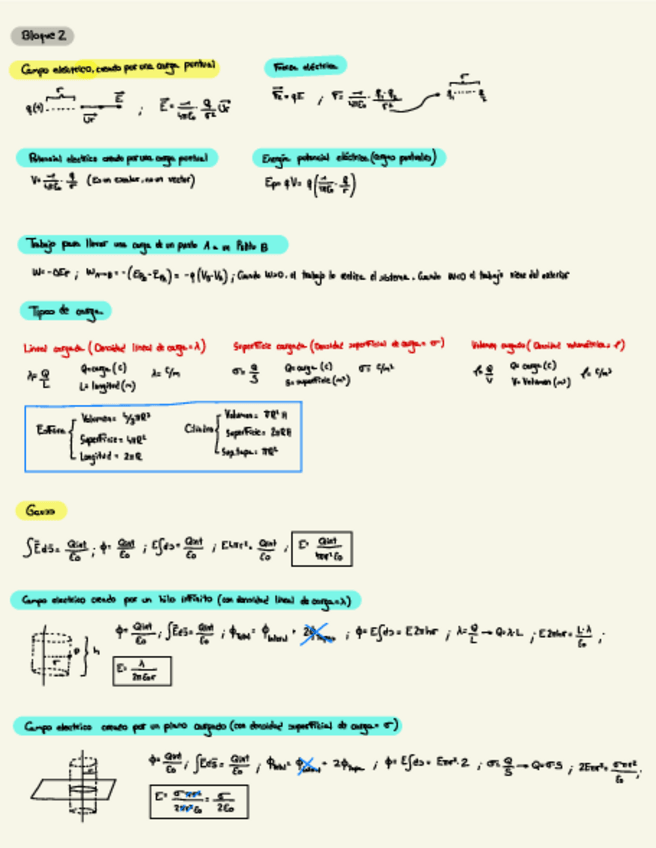 Bloque 2
Campo eléctrico, creado por una carga puntual
Fuerza eléctrica
q(+) r E⃗ u⃗r ; E⃗ = 1/4πε₀ · Q/r² u⃗r
F⃗e = qE ; F = 1/4πε₀ · q₁·q₂/r² r q₁ q₂
Potencial electrico creado por una carga puntual
Energía potencial eléctrica (cargas puntuales)
V = 1/4πε₀ · q/r (Es un escalar, no un vector)
Ep = qV = q(1/4πε₀ · q/r)
Trabajo para llevar una carga de un punto A a un Punto B
W = -ΔEp ; W A→B = -(EpB - EpA) = -q(VB - VA) ; Cuando W>0, el trabajo lo realiza el sistema. Cuando W<0 el trabajo viene del exterior
Tipos de carga
Lineal cargada (Densidad lineal de carga = λ)
Superficie cargada (Densidad superficial de carga = σ)
Volumen cargado (Densidad volumétrica = ρ)
λ = Q/L Q = carga (C) L = longitud (m) λ = C/m
σ = Q/S Q = carga (C) S = superficie (m²) σ = C/m²
ρ = Q/V Q = carga (C) V = Volumen (m³) ρ = C/m³
Esfera Volumen = 4/3πR³ Superficie = 4πR² Longitud = 2πR
Cilindro Volumen = πR²H Superficie = 2πRH Sup.tapa = πR²
Gauss
∫E⃗ds⃗ = Qint/ε₀ ; ϕ = Qint/ε₀ ; E∫ds = Qint/ε₀ ; E4πr² = Qint/ε₀ ; E = Qint/4πr²ε₀
Campo electrico creado por un hilo infinito (con densidad lineal de carga = λ)
r P h
ϕ = Qint/ε₀ ; ∫E⃗ds⃗ = Qint/ε₀ ; ϕTotal = ϕlateral + 2ϕtapa ; ϕ = E∫ds = E2πhr ; λ = Q/L → Q = λ·L ; E2πhr = L·λ/ε₀ ;
E = λ/2πε₀r
Campo electrico creado por un plano cargado (con densidad superficial de carga = σ)
ϕ = Qint/ε₀ ; ∫E⃗ds⃗ = Qint/ε₀ ; ϕTotal = ϕlateral + 2ϕtapa ; ϕ = E∫ds = Eπr²·2 ; σ = Q/S → Q = σ·S ; 2Eπr² = σπr²/ε₀ ;
E = σπr²/2πr²ε₀ = σ/2ε₀